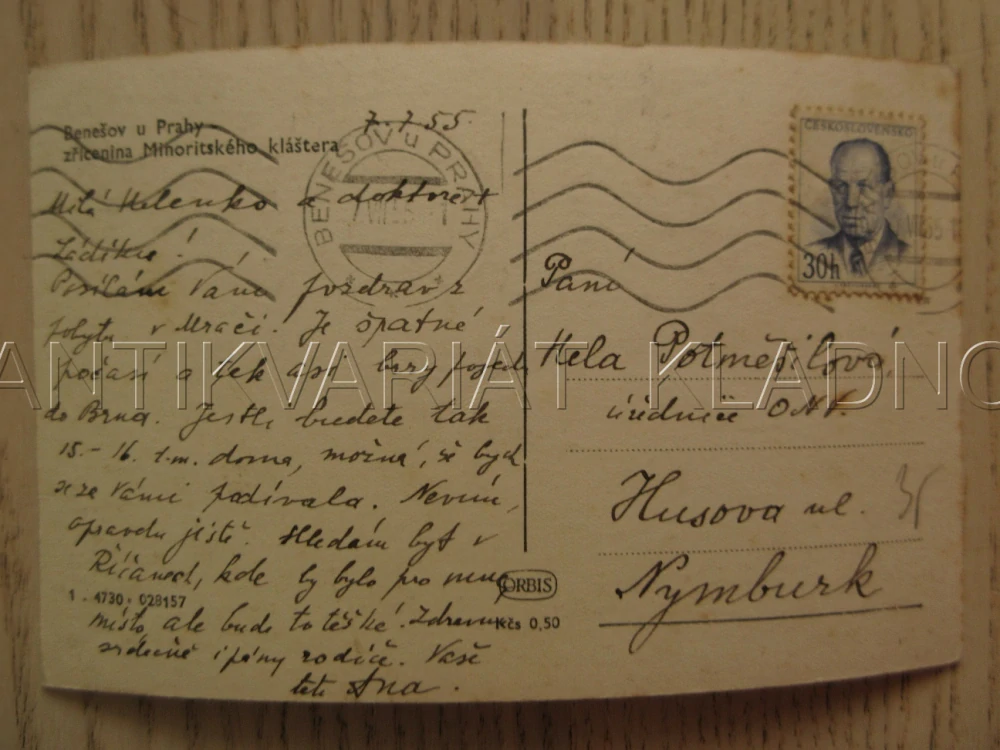 Benešov u Prahy
zřícenina Minoritského kláštera
7.7.55.
BENEŠOV u PRAHY
Milá Helenko a
Posílám Vám pozdrav z
pobytu v Mrači. Je špatné
počasí a tak asi brzy pojedu
do Brna. Jestli budete tak
15.-16. t.m. doma, možná, že bych
se za Vámi podívala. Nevím,
opravdu jistě. Hledám byt v
Říčanech, kde by bylo pro mne
místo, ale bude to těžké. Zdravím
srdečně i pány rodiče. Vaše
teta Ana.
1 - 4730 - 028157
ORBIS
Kčs 0,50
ČESKOSLOVENSKO
30h
Paní
Hela Potměšilová,
úřednice ONV.
Husova ul.
Nymburk
ANTIKVARIÁT KLADNO